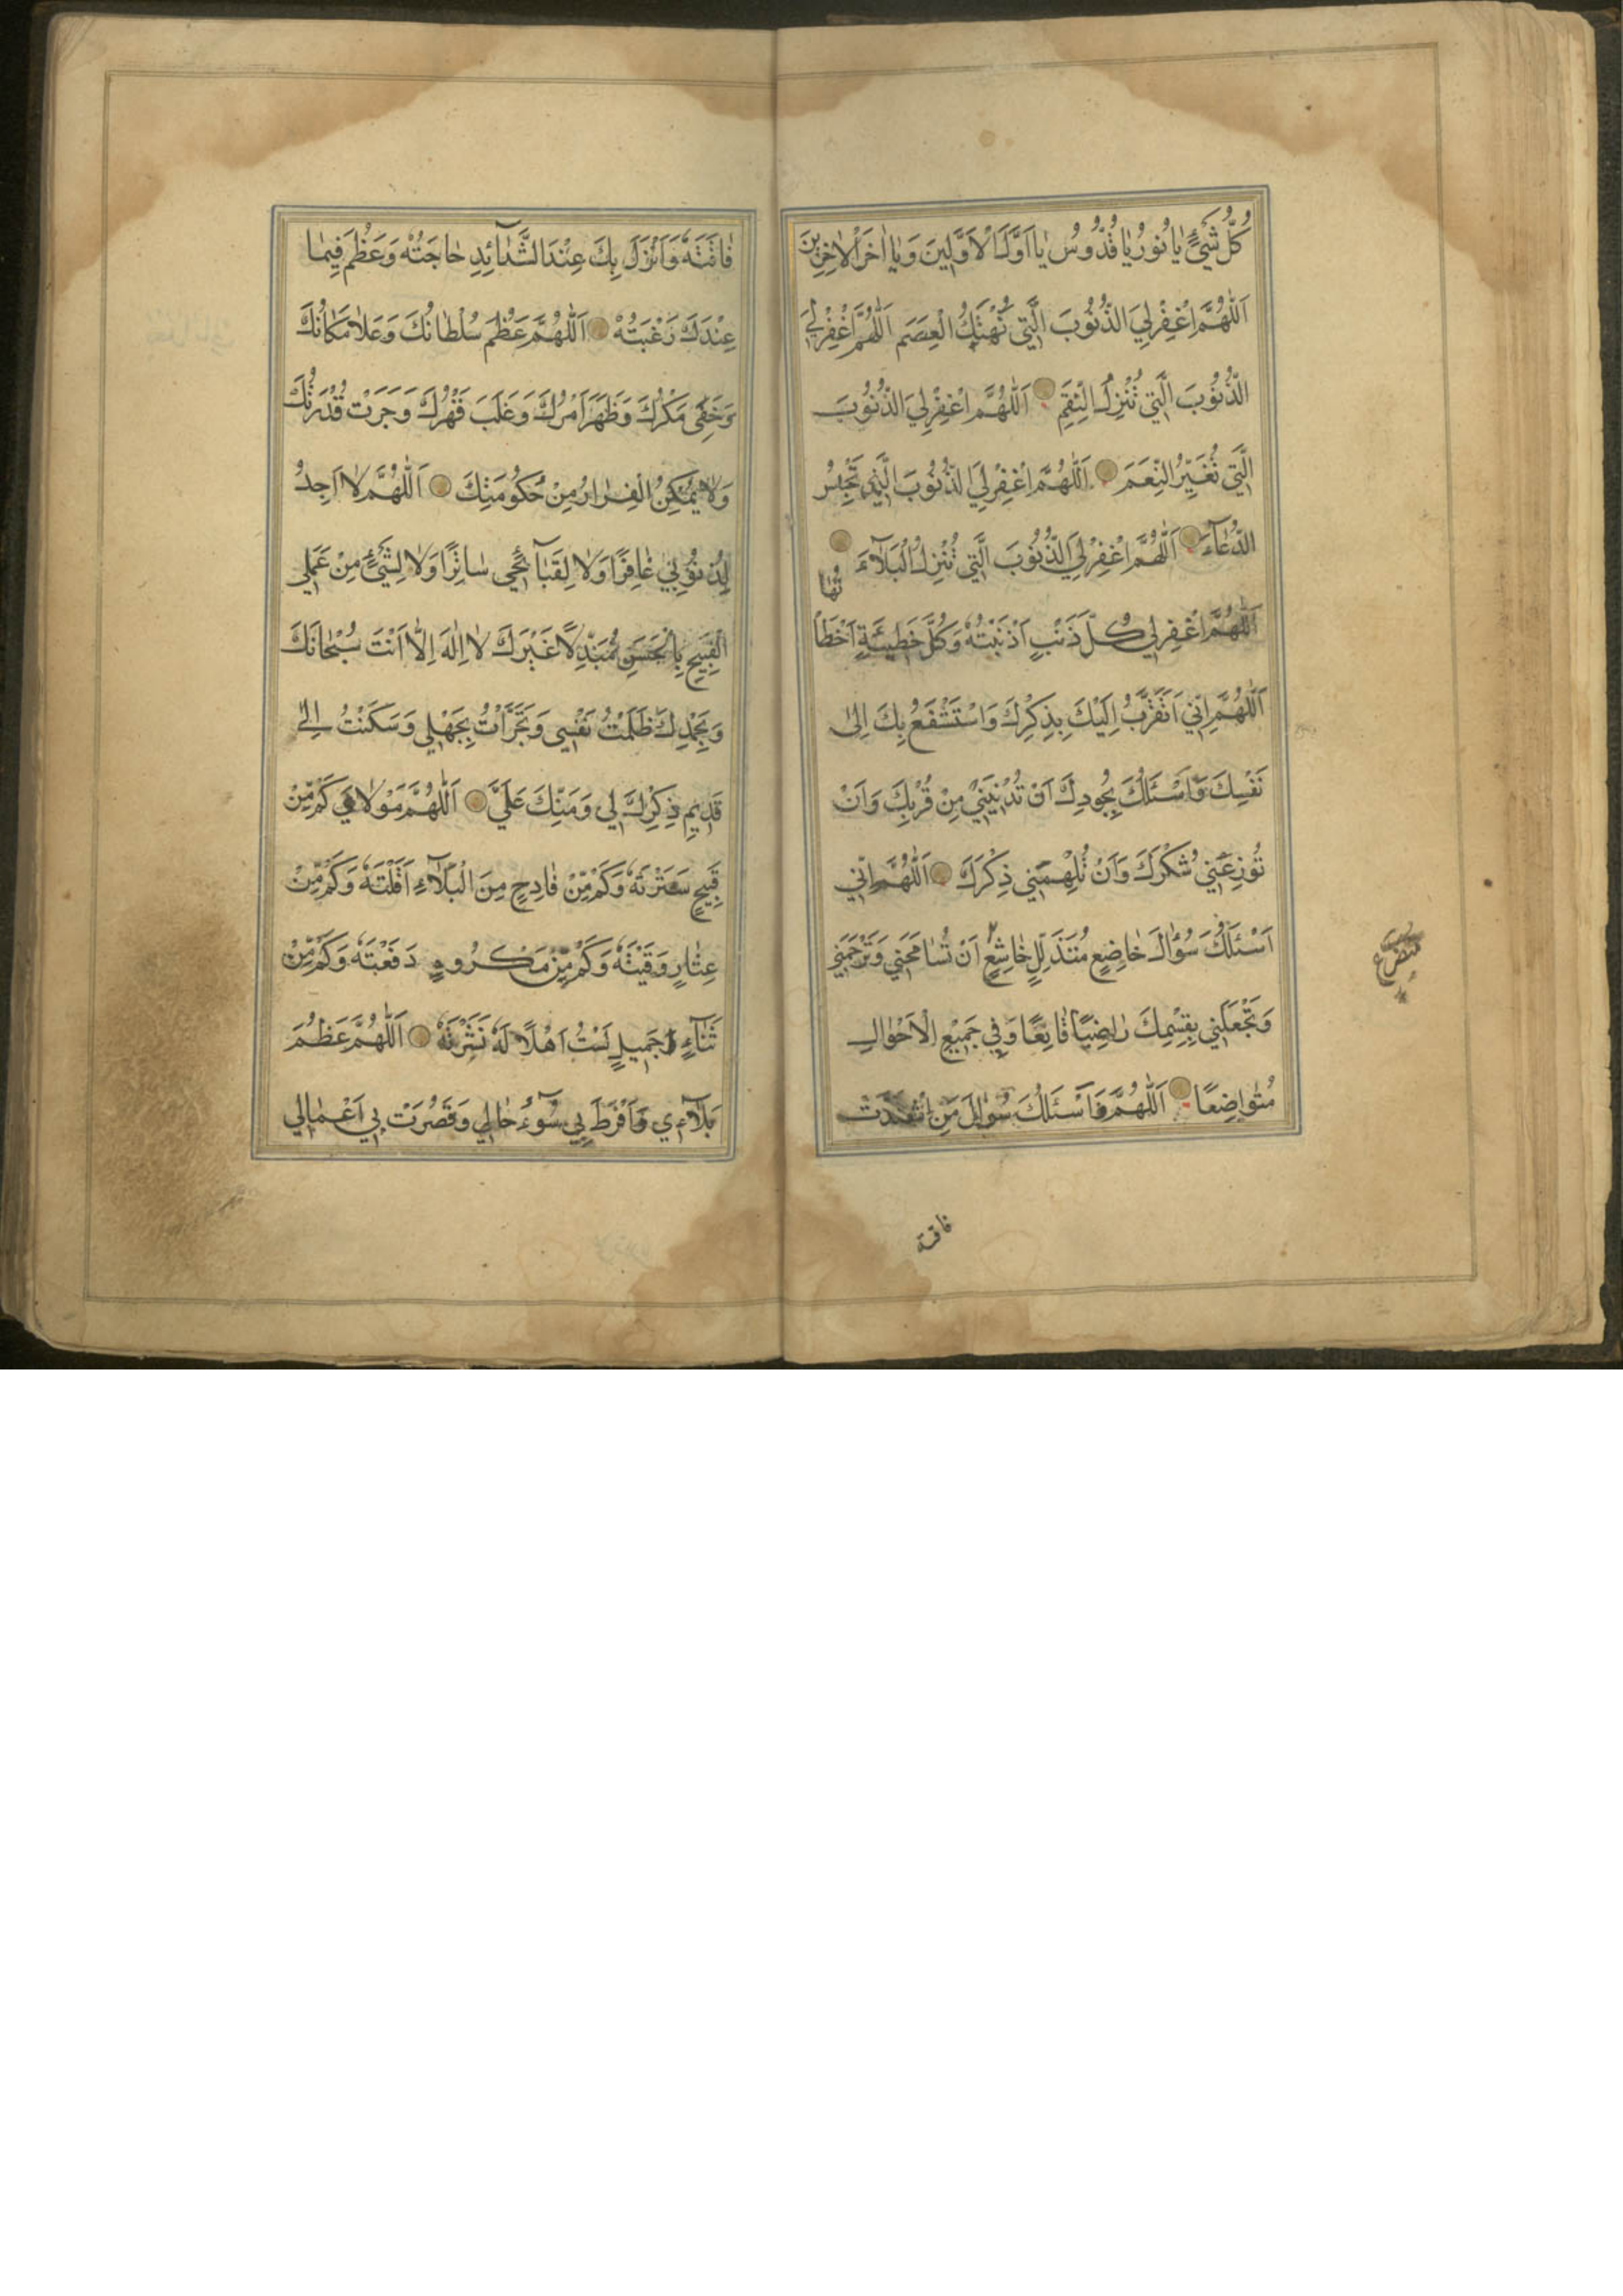 كُلِّ شَيْءٍ يَا نُورُ يَا قُدُّوسُ يَا اَوَّلَ الْاَوَّلِينَ وَيَا اٰخِرَ الْاٰخِرِينَ
اَللّٰهُمَّ اغْفِرْ لِيَ الذُّنُوبَ الَّتِي تَهْتِكُ الْعِصَمَ اَللّٰهُمَّ اغْفِرْ لِيَ
الذُّنُوبَ الَّتِي تُنْزِلُ النِّقَمَ اَللّٰهُمَّ اغْفِرْ لِيَ الذُّنُوبَ
الَّتِي تُغَيِّرُ النِّعَمَ اَللّٰهُمَّ اغْفِرْ لِيَ الذُّنُوبَ الَّتِي تَحْبِسُ
الدُّعَاءَ اَللّٰهُمَّ اغْفِرْ لِيَ الذُّنُوبَ الَّتِي تُنْزِلُ الْبَلَآءَ
اَللّٰهُمَّ اغْفِرْ لِي كُلَّ ذَنْبٍ اَذْنَبْتُهُ وَكُلَّ خَطِيئَةٍ اَخْطَأْتُهَا
اَللّٰهُمَّ اِنِّي اَتَقَرَّبُ اِلَيْكَ بِذِكْرِكَ وَاَسْتَشْفِعُ بِكَ اِلٰى
نَفْسِكَ وَاَسْئَلُكَ بِجُودِكَ اَنْ تُدْنِيَنِي مِنْ قُرْبِكَ وَاَنْ
تُوزِعَنِي شُكْرَكَ وَاَنْ تُلْهِمَنِي ذِكْرَكَ اَللّٰهُمَّ اِنِّي
اَسْئَلُكَ سُؤَالَ خَاضِعٍ مُتَذَلِّلٍ خَاشِعٍ اَنْ تُسَامِحَنِي وَتَرْحَمَنِي
متضرع
وَتَجْعَلَنِي بِقِسْمِكَ رَاضِيًا قَانِعًا وَفِي جَمِيعِ الْاَحْوَالِ
مُتَوَاضِعًا اَللّٰهُمَّ وَاَسْئَلُكَ سُؤَالَ مَنِ اشْتَدَّتْ
فاقته
فَاقَتُهُ وَاَنْزَلَ بِكَ عِنْدَ الشَّدَآئِدِ حَاجَتَهُ وَعَظُمَ فِيمَا
عِنْدَكَ رَغْبَتُهُ اَللّٰهُمَّ عَظُمَ سُلْطَانُكَ وَعَلَا مَكَانُكَ
وَخَفِيَ مَكْرُكَ وَظَهَرَ اَمْرُكَ وَغَلَبَ قَهْرُكَ وَجَرَتْ قُدْرَتُكَ
وَلَا يُمْكِنُ الْفِرَارُ مِنْ حُكُومَتِكَ اَللّٰهُمَّ لَا اَجِدُ
لِذُنُوبِي غَافِرًا وَلَا لِقَبَآئِحِي سَاتِرًا وَلَا لِشَيْءٍ مِنْ عَمَلِي
الْقَبِيحِ بِالْحَسَنِ مُبَدِّلًا غَيْرَكَ لَا اِلٰهَ اِلَّا اَنْتَ سُبْحَانَكَ
وَبِحَمْدِكَ ظَلَمْتُ نَفْسِي وَتَجَرَّأْتُ بِجَهْلِي وَسَكَنْتُ اِلٰى
قَدِيمِ ذِكْرِكَ لِي وَمَنِّكَ عَلَيَّ اَللّٰهُمَّ مَوْلَايَ كَمْ مِنْ
قَبِيحٍ سَتَرْتَهُ وَكَمْ مِنْ فَادِحٍ مِنَ الْبَلَآءِ اَقَلْتَهُ وَكَمْ مِنْ
عِثَارٍ وَقَيْتَهُ وَكَمْ مِنْ مَكْرُوهٍ دَفَعْتَهُ وَكَمْ مِنْ
ثَنَآءٍ جَمِيلٍ لَسْتُ اَهْلًا لَهُ نَشَرْتَهُ اَللّٰهُمَّ عَظُمَ
بَلَآءِي وَاَفْرَطَ بِي سُوٓءُ حَالِي وَقَصُرَتْ بِي اَعْمَالِي